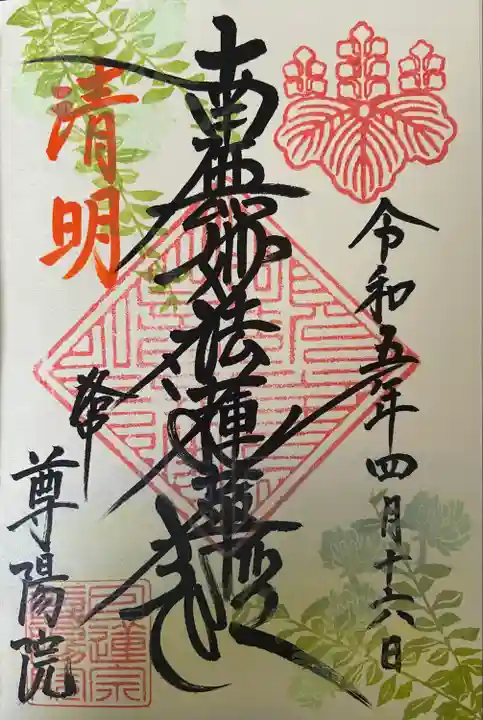 令和五年四月十六日
南無妙法蓮華経
清明
尊陽院
日蓮宗